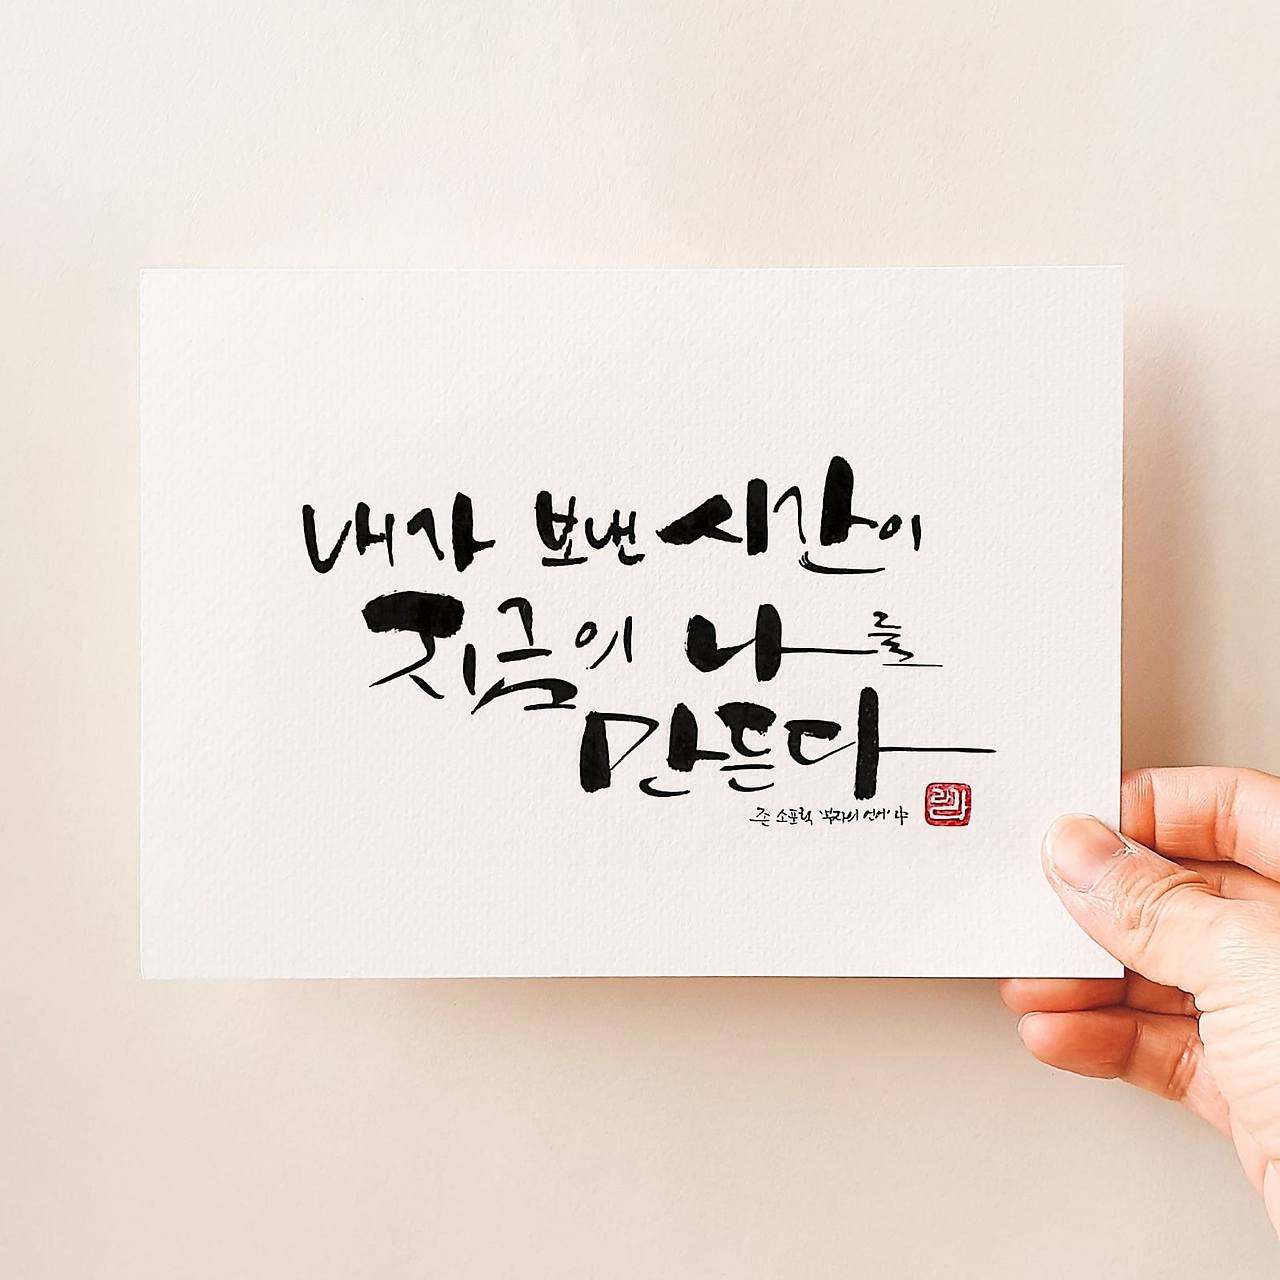 내가 보낸 시간이
지금의 나를
만든다
존 소포릭 '부자의 언어' 中